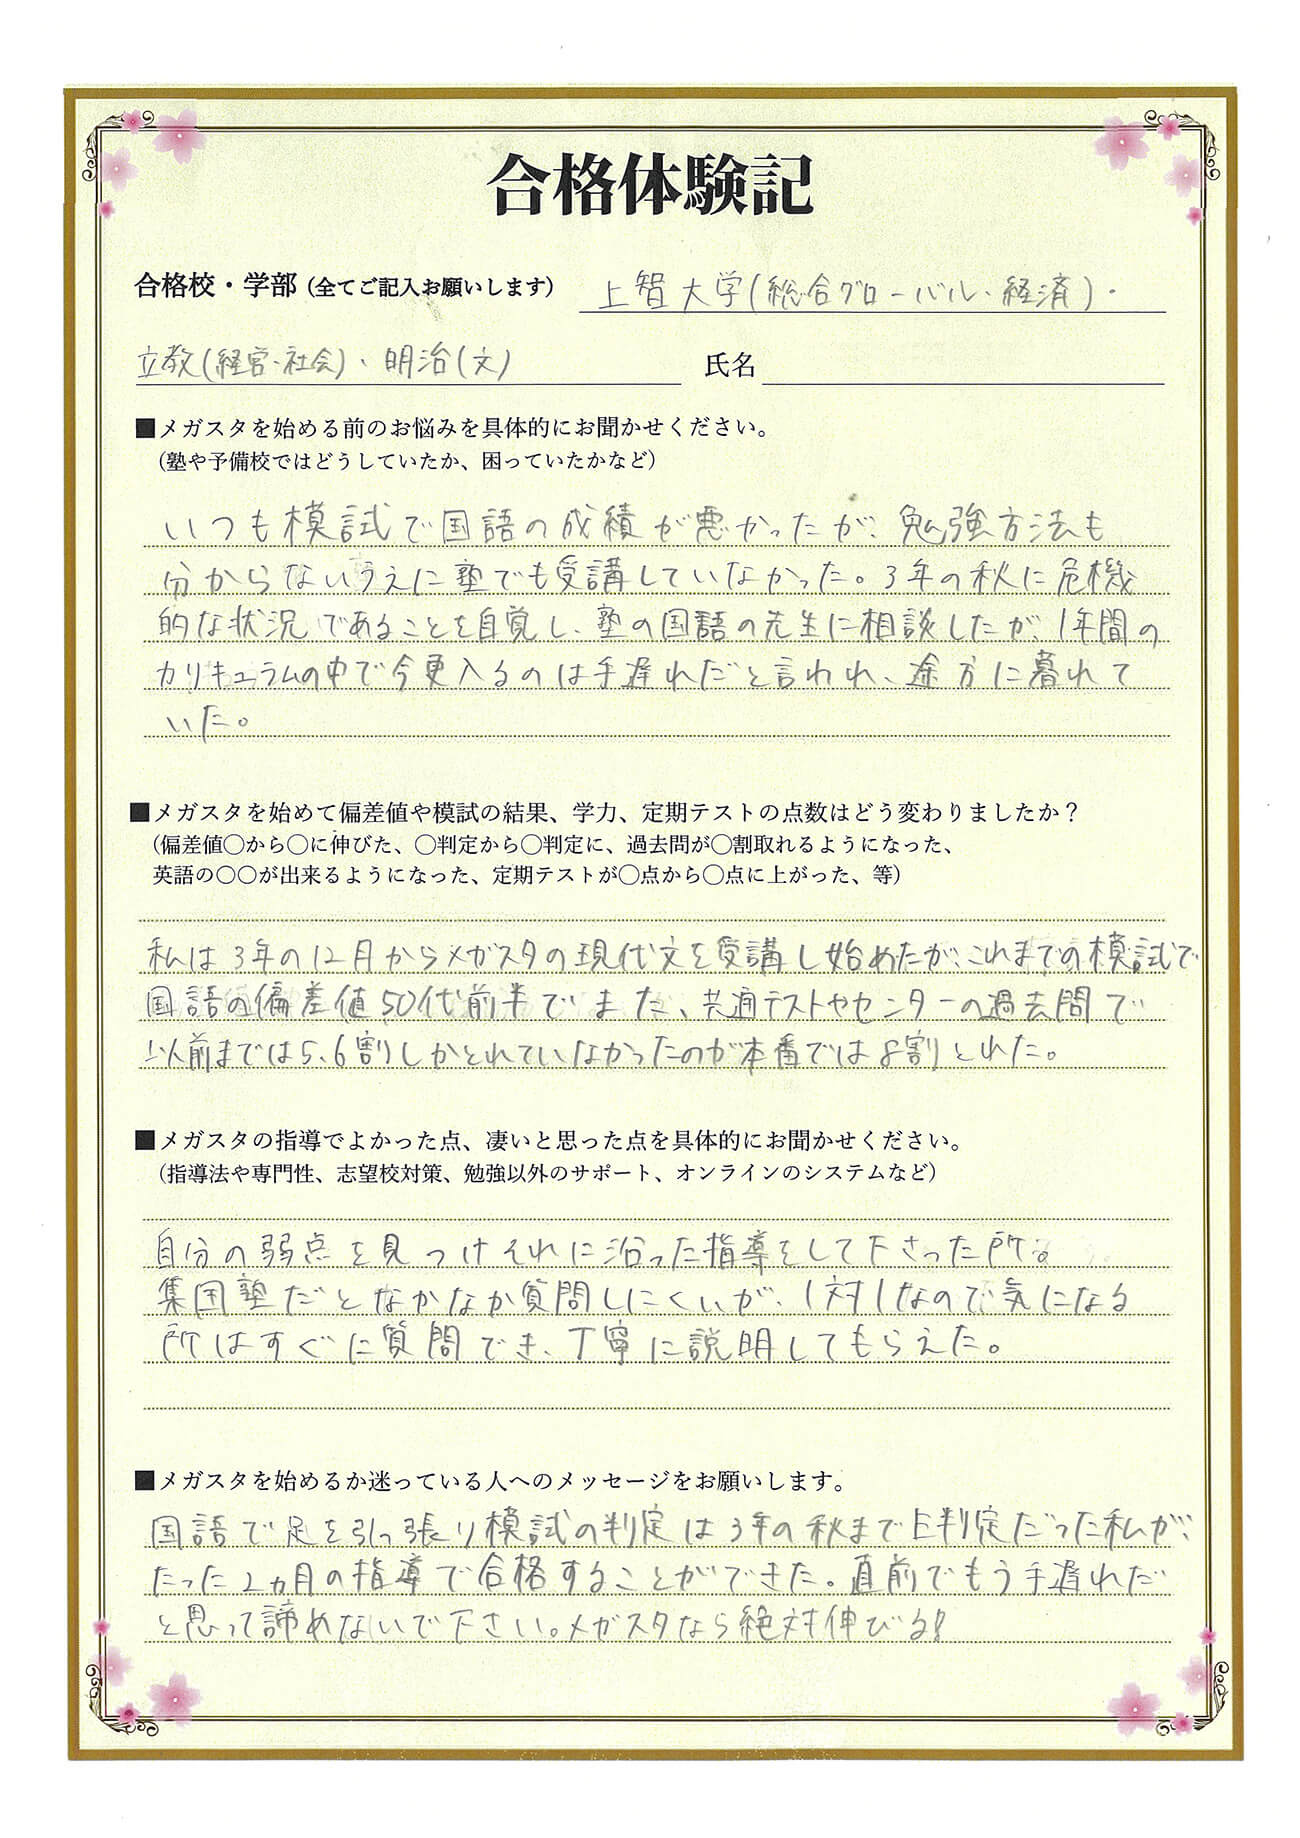 合格体験記
合格校・学部 (全てご記入お願いします) 上智大学(総合グローバル・経済)・
立教(経営・社会)、明治(文) 氏名
■メガスタを始める前のお悩みを具体的にお聞かせください。
(塾や予備校ではどうしていたか、困っていたかなど)
いつも模試で国語の成績が悪かったが、勉強方法も
分からないうえに塾でも受講していなかった。3年の秋に危機
的な状況であることを自覚し、塾の国語の先生に相談したが、1年間の
カリキュラムの中で今更入るのは手遅れだと言われ、途方に暮れて
いた。
■メガスタを始めて偏差値や模試の結果、学力、定期テストの点数はどう変わりましたか？
(偏差値〇から〇に伸びた、〇判定から〇判定に、過去問が〇割取れるようになった、
英語の〇〇が出来るようになった、定期テストが〇点から〇点に上がった、等)
私は3年の12月からメガスタの現代文を受講し始めたが、これまでの模試で
国語の偏差値50代前半でまた、共通テストやセンターの過去問で
以前までは5、6割しかとれていなかったのが本番では8割とれた。
■メガスタの指導でよかった点、凄いと思った点を具体的にお聞かせください。
(指導法や専門性、志望校対策、勉強以外のサポート、オンラインのシステムなど)
自分の弱点を見つけそれに沿った指導をして下さった所。
集団塾だとなかなか質問しにくいが、1対1なので気になる
所はすぐに質問でき、丁寧に説明してもらえた。
■メガスタを始めるか迷っている人へのメッセージをお願いします。
国語で足を引っ張り模試の判定は3年の秋までE判定だった私が、
たった2ヵ月の指導で合格することができた。直前でもう手遅れだ
と思って諦めないで下さい。メガスタなら絶対伸びる!